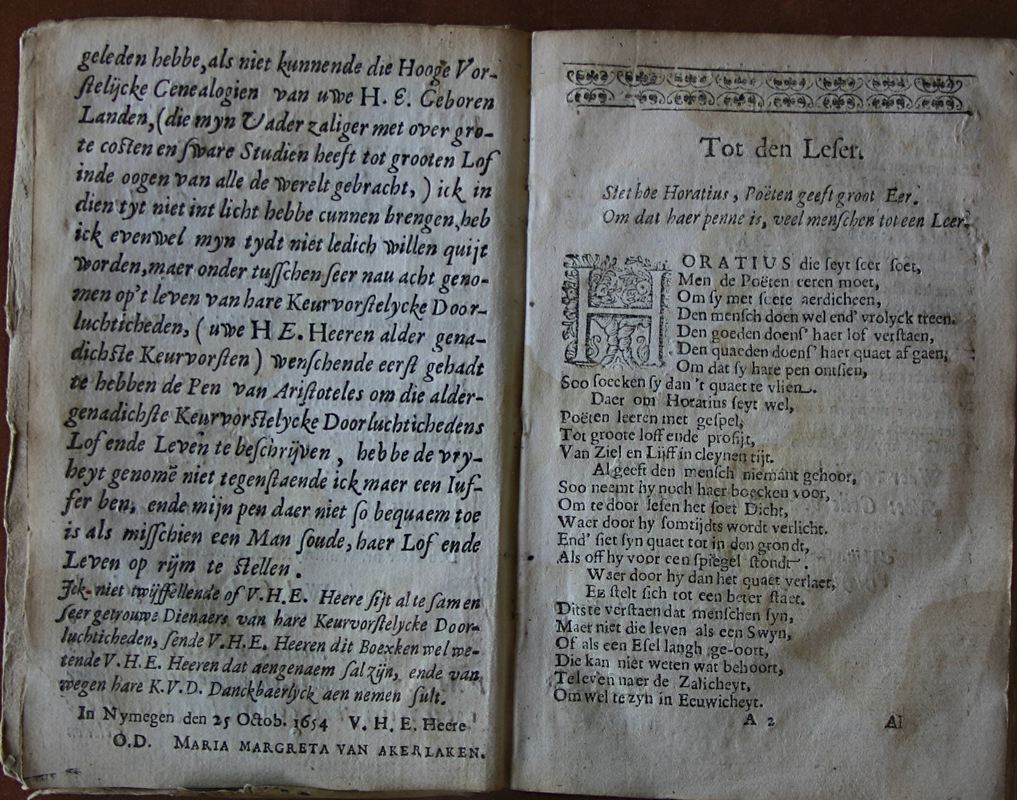 geleden hebbe, als niet kunnende die Hooge Vor-
stelijcke Genealogien van uwe H. E. Geboren
Landen, (die myn Vader zaliger met over gro-
te costen en sware Studien heeft tot grooten Lof
inde oogen van alle de werelt gebracht,) ick in
dien tyt niet int licht hebbe cunnen brengen, heb
ick evenwel myn tydt niet ledich willen quijt
worden, maer onder tusschen seer nau acht geno-
men op't leven van hare Keurvorstelycke Door-
luchticheden, (uwe H E. Heeren alder gena-
dichste Keurvorsten) wenschende eerst gehadt
te hebben de Pen van Aristoteles om die alder-
genadichste Keurvorstelycke Doorluchtichedens
Lof ende Leven te beschrijven, hebbe de vry-
heyt genomē niet tegenstaende ick maer een Iuf-
fer ben, ende mijn pen daer niet so bequaem toe
is als misschien een Man soude, haer Lof ende
Leven op rijm te stellen.
Ick niet twijffellende of V.H.E. Heere sijt al te samen
seer getrouwe Dienaers van hare Keurvorstelycke Door-
luchticheden, sende V.H.E. Heeren dit Boexken wel we-
tende V.H.E. Heeren dat aengenaem sal zijn, ende van
wegen hare K.V.D. Danckbaerlyck aen nemen sult.
In Nymegen den 25 Octob. 1654 V. H. E. Heere
O.D. MARIA MARGRETA VAN AKERLAKEN.
Tot den Leser.
Siet hoe Horatius, Poëten geeft groot Eer.
Om dat haer penne is, veel menschen tot een Leer.
HORATIUS die seyt seer soet,
Men de Poëten eeren moet,
Om sy met soete aerdicheen,
Den mensch doen wel end' vrolyck treen.
Den goeden doens' haer lof verstaen,
Den quaeden doens' haer quaet af gaen,
Om dat sy hare pen ontsien,
Soo soecken sy dan 't quaet te vlien.
Daer om Horatius seyt wel,
Poëten leeren met gespel,
Tot groote loff ende profijt,
Van Ziel en Lijff in cleynen tijt.
Al geeft den mensch niemant gehoor,
Soo neemt hy noch haer boecken voor,
Om te door lesen het soet Dicht,
Waer door hy somtijdts wordt verlicht.
End' siet syn quaet tot in den grondt,
Als off hy voor een spiegel stondt.
Waer door hy dan het quaet verlaet,
En stelt sich tot een beter staet.
Dits te verstaen dat menschen syn,
Maer niet die leven als een Swyn,
Of als een Esel langh ge-oort,
Die kan niet weten wat behoort,
Te leven naer de Zalicheyt,
Om wel te zyn in Eeuwicheyt.
A 2 Al